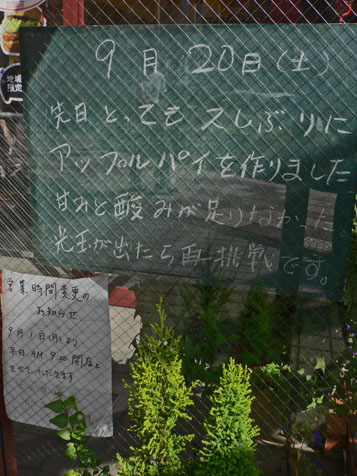 地域
限定
9月 20日(土)
先日とってもスしぶりに
アップルパイを作りました
甘みと酸みが足りなかった。
光玉が出たら再挑戦です。
営業時間変更の
お知らせ
9月1日(月)より
平日 AM 9:00 開店と
させていただきます